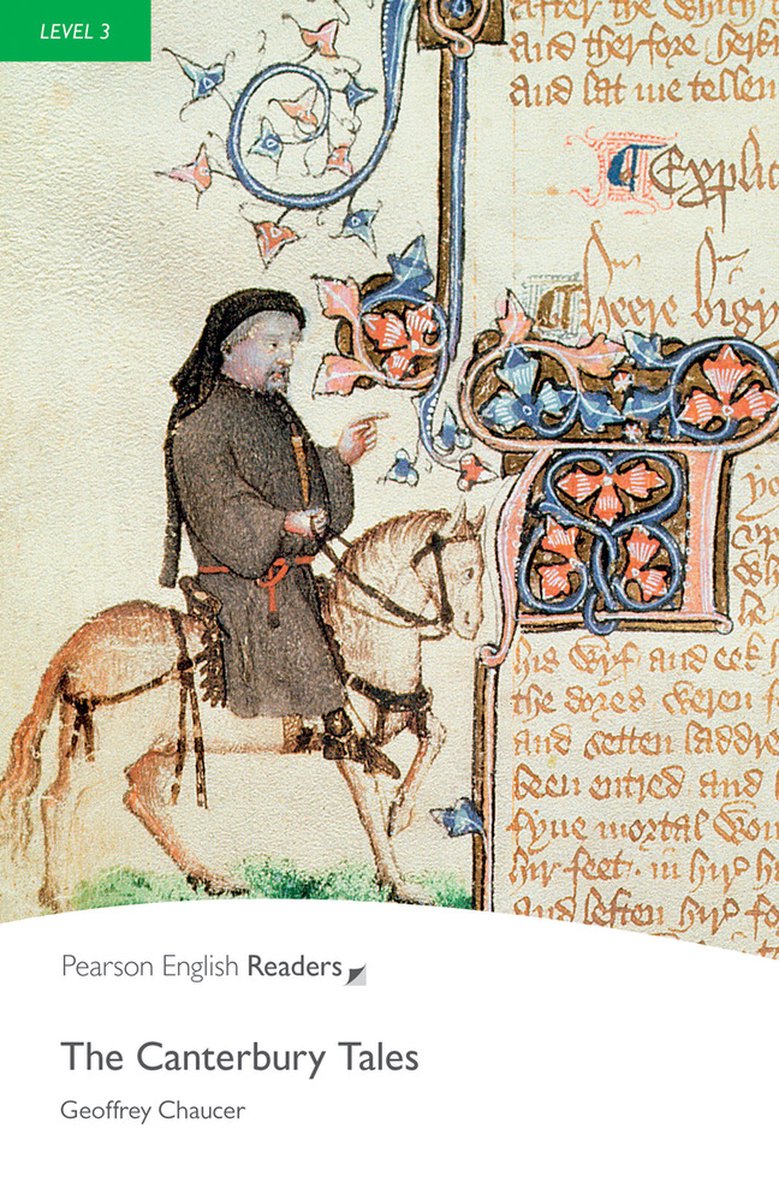 LEVEL 3
after the which
and therfore herk
and lat me tellen
Explic
heere bigy
his wyf and eek h
the dores weren
and setten laddre
been entred and
fyue mortal wou
hir feet in hir h
and leften hir fo
Pearson English Readers
The Canterbury Tales
Geoffrey Chaucer